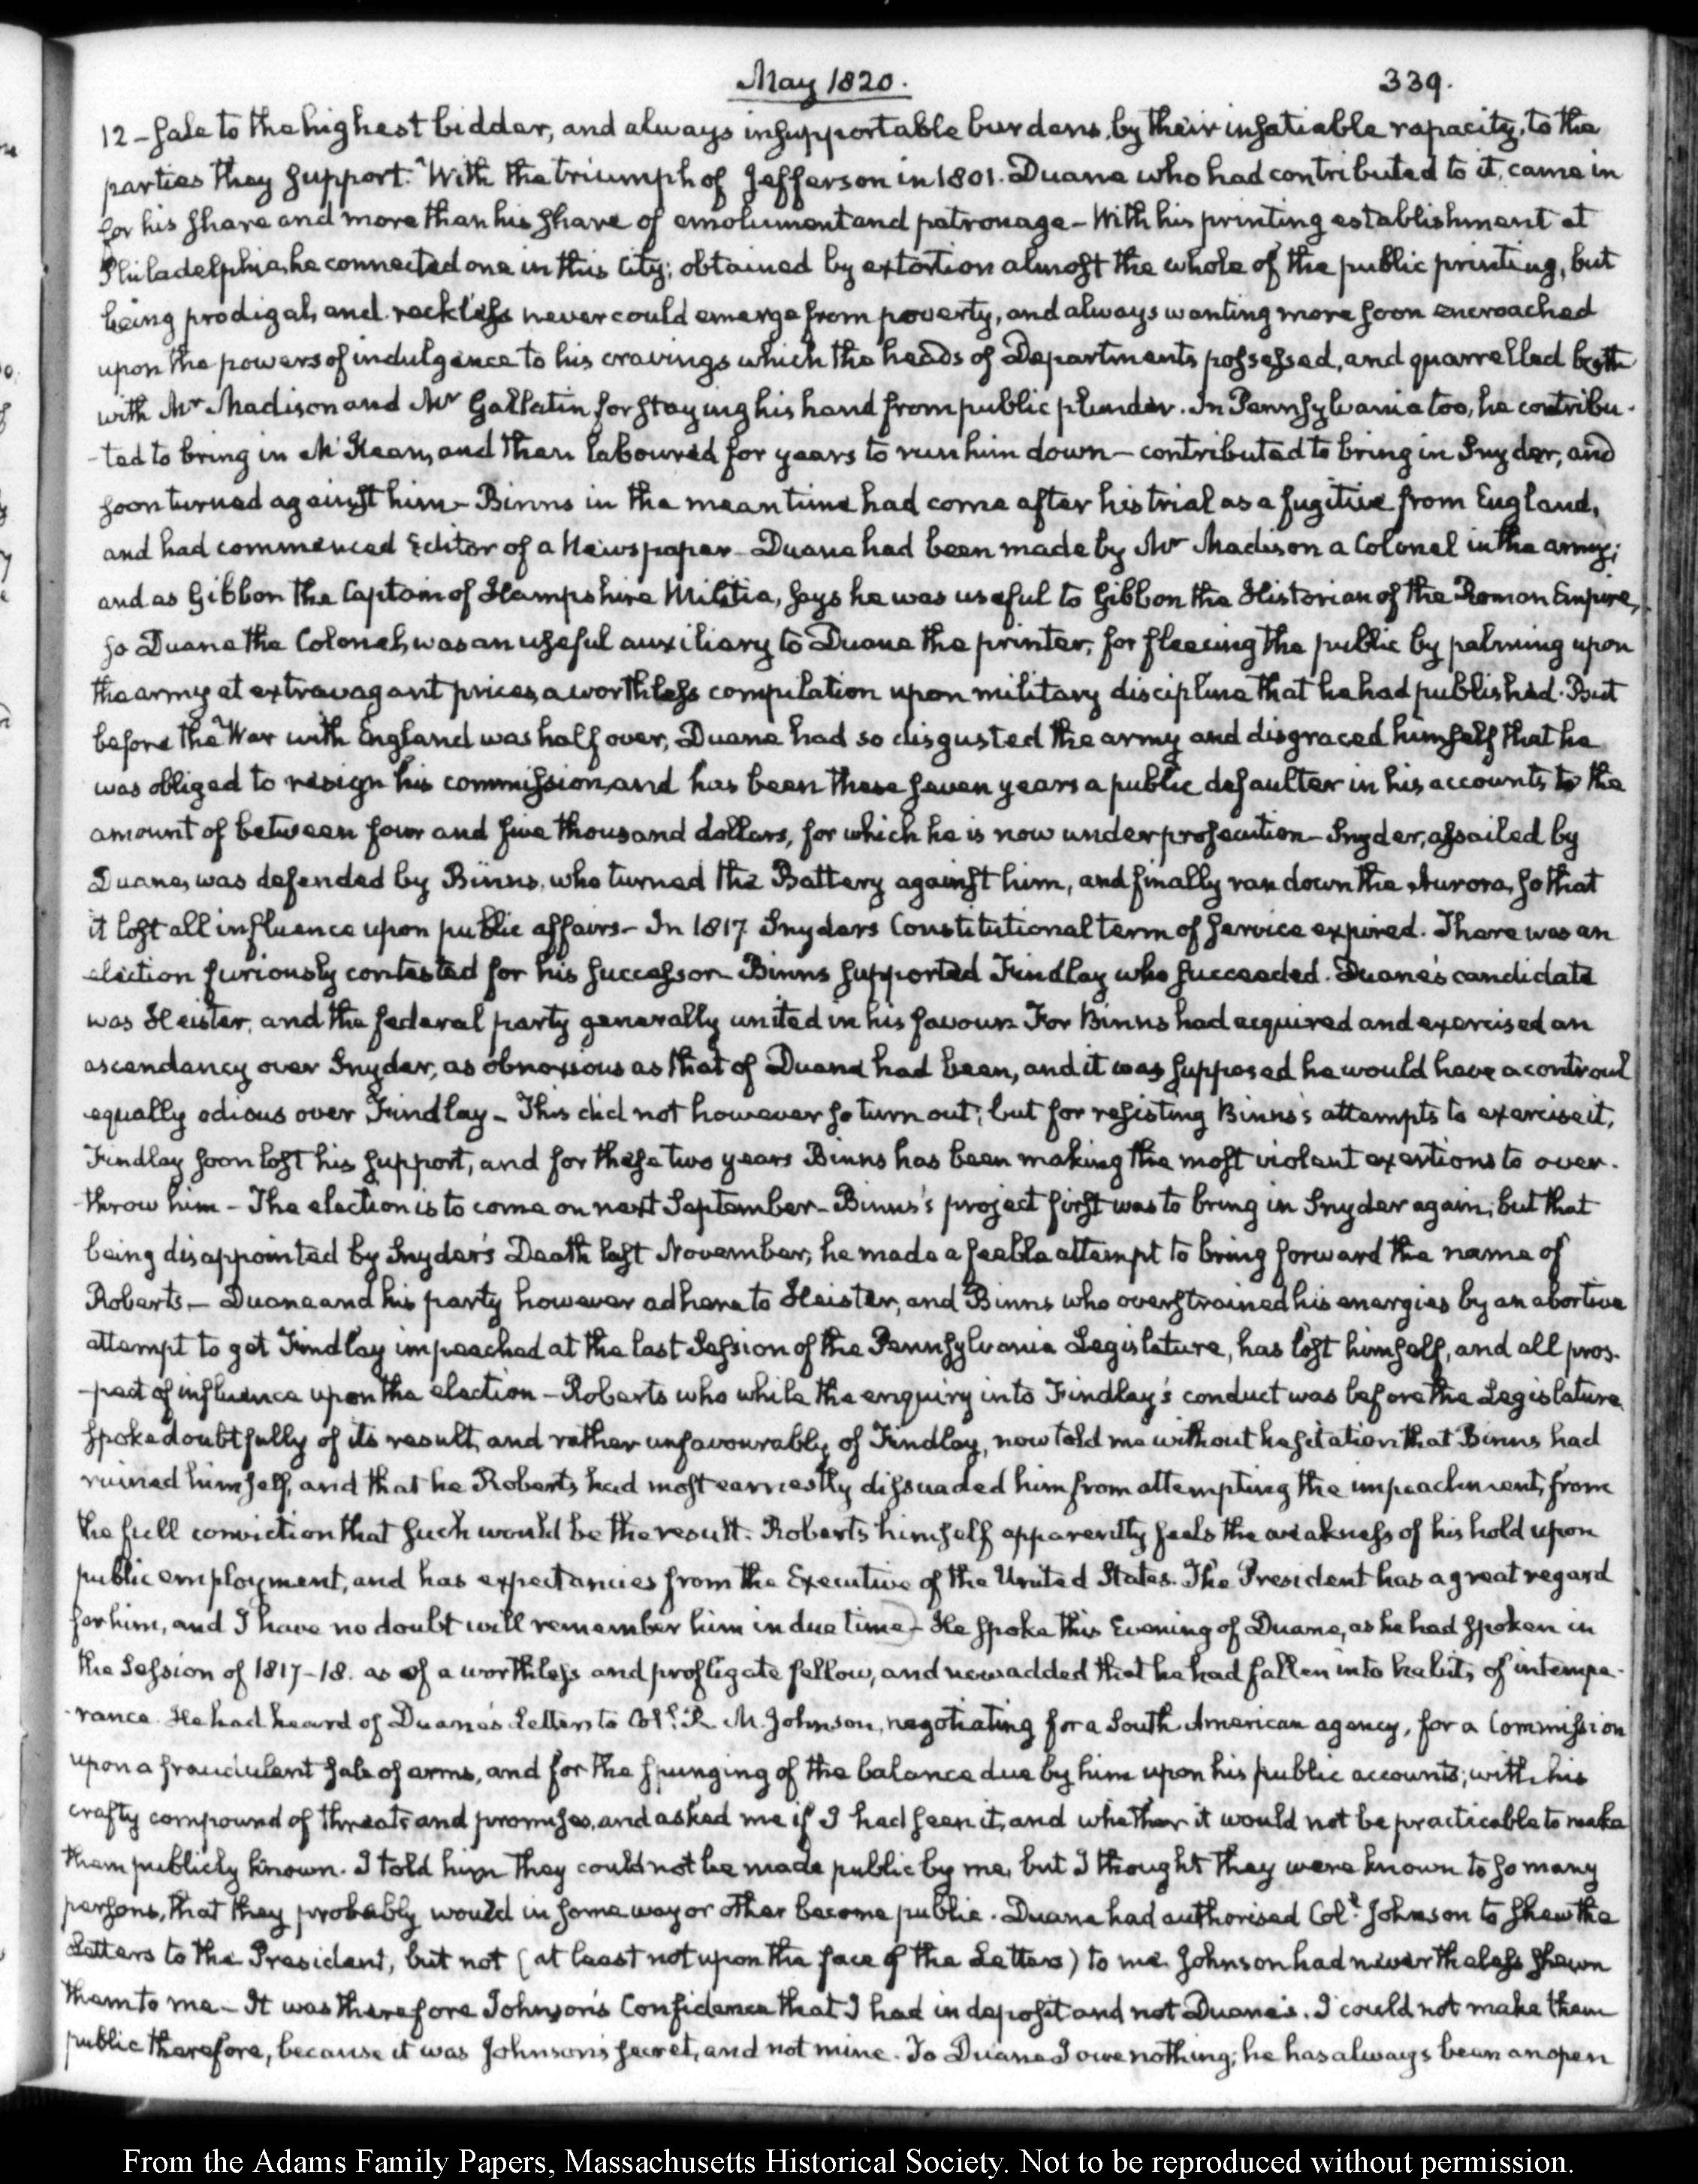 May 1820. 339.
12 - sale to the highest bidder, and always insupportable burdens, by their insatiable rapacity, to the
parties they support. With the triumph of Jefferson in 1801. Duane who had contributed to it, came in
for his share and more than his share of emolument and patronage - With his printing establishment at
Philadelphia, he connected one in this City; obtained by extortion almost the whole of the public printing, but
being prodigal, and reckless never could emerge from poverty, and always wanting more soon encroached
upon the powers of indulgence to his cravings which the heads of Departments possessed, and quarrelled both
with Mr Madison and Mr Gallatin for staying his hand from public plunder. In Pennsylvania too, he contribu-
-ted to bring in McKean, and then laboured for years to run him down - contributed to bring in Snyder, and
soon turned against him - Binns in the mean time had come after his trial as a fugitive from England,
and had commenced Editor of a Newspaper - Duane had been made by Mr Madison a Colonel in the army;
and as Gibbon the Captain of Hampshire Militia, says he was useful to Gibbon the Historian of the Roman Empire,
so Duane the Colonel, was an useful auxiliary to Duane the printer, for fleecing the public by palming upon
the army at extravagant prices, a worthless compilation upon military discipline that he had published. But
before the War with England was half over, Duane had so disgusted the army and disgraced himself that he
was obliged to resign his commission, and has been these seven years a public defaulter in his accounts to the
amount of between four and five thousand dollars, for which he is now under prosecution - Snyder, assailed by
Duane, was defended by Binns, who turned the Battery against him, and finally ran down the Aurora, so that
it lost all influence upon public affairs - In 1817 Snyder's Constitutional term of service expired. There was an
election furiously contested for his successor - Binns supported Findlay who succeeded. Duane's candidate
was Heister, and the federal party generally united in his favour. For Binns had acquired and exercised an
ascendancy over Snyder, as obnoxious as that of Duane had been, and it was supposed he would have a controul
equally odious over Findlay - This did not however so turn out; but for resisting Binns's attempts to exercise it,
Findlay soon lost his support, and for these two years Binns has been making the most violent exertions to over-
-throw him - The election is to come on next September - Binns's project first was to bring in Snyder again; but that
being disappointed by Snyder's Death last November, he made a feeble attempt to bring forward the name of
Roberts - Duane and his party however adhere to Heister, and Binns who overstrained his energies by an abortive
attempt to get Findlay impeached at the last Session of the Pennsylvania Legislature, has lost himself, and all pros-
-pect of influence upon the election - Roberts who while the enquiry into Findlay's conduct was before the Legislature
spoke doubtfully of its result, and rather unfavourably of Findlay, now told me without hesitation that Binns had
ruined himself, and that he Roberts, had most earnestly dissuaded him from attempting the impeachment, from
the full conviction that such would be the result. Roberts himself apparently feels the weakness of his hold upon
public employment, and has expectancies from the Executive of the United States. The President has a great regard
for him, and I have no doubt will remember him in due time - He spoke this Evening of Duane, as he had spoken in
the Session of 1817-18. as of a worthless and profligate fellow, and now added that he had fallen into habits of intempe-
-rance. He had heard of Duane's Letters to Coll. R. M. Johnson, negotiating for a South American agency, for a Commission
upon a fraudulent sale of arms, and for the spunging of the balance due by him upon his public accounts; with his
crafty compound of threats and promises, and asked me if I had seen it, and whether it would not be practicable to make
them publicly known. I told him they could not be made public by me, but I thought they were known to so many
persons, that they probably would in some way or other become public. Duane had authorised Coll. Johnson to shew the
Letters to the President, but not (at least not upon the face of the Letters) to me. Johnson had nevertheless shewn
them to me - It was therefore Johnson's Confidence that I had in deposit and not Duane's. I could not make them
public therefore, because it was Johnson's secret, and not mine. To Duane I owe nothing; he has always been an open
From the Adams Family Papers, Massachusetts Historical Society. Not to be reproduced without permission.